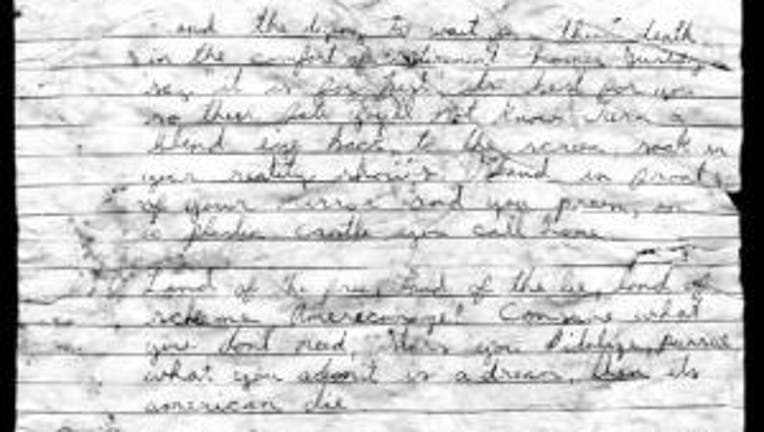 and the dying to wait for their death
in the comfort of retirement homes, quietly
say "it is for best" its best for you
so their fate you'll not know, turn a
blind eye back to the screen, soak in
your reality shows. Stand in front
of your mirror and you preen, in
a plastic castle you call home
Land of the free, land of the lie, land of
scheme Americanize! Consume what
you dont need, stars you idolize, pursue
what you admit is a dream, then its
american die